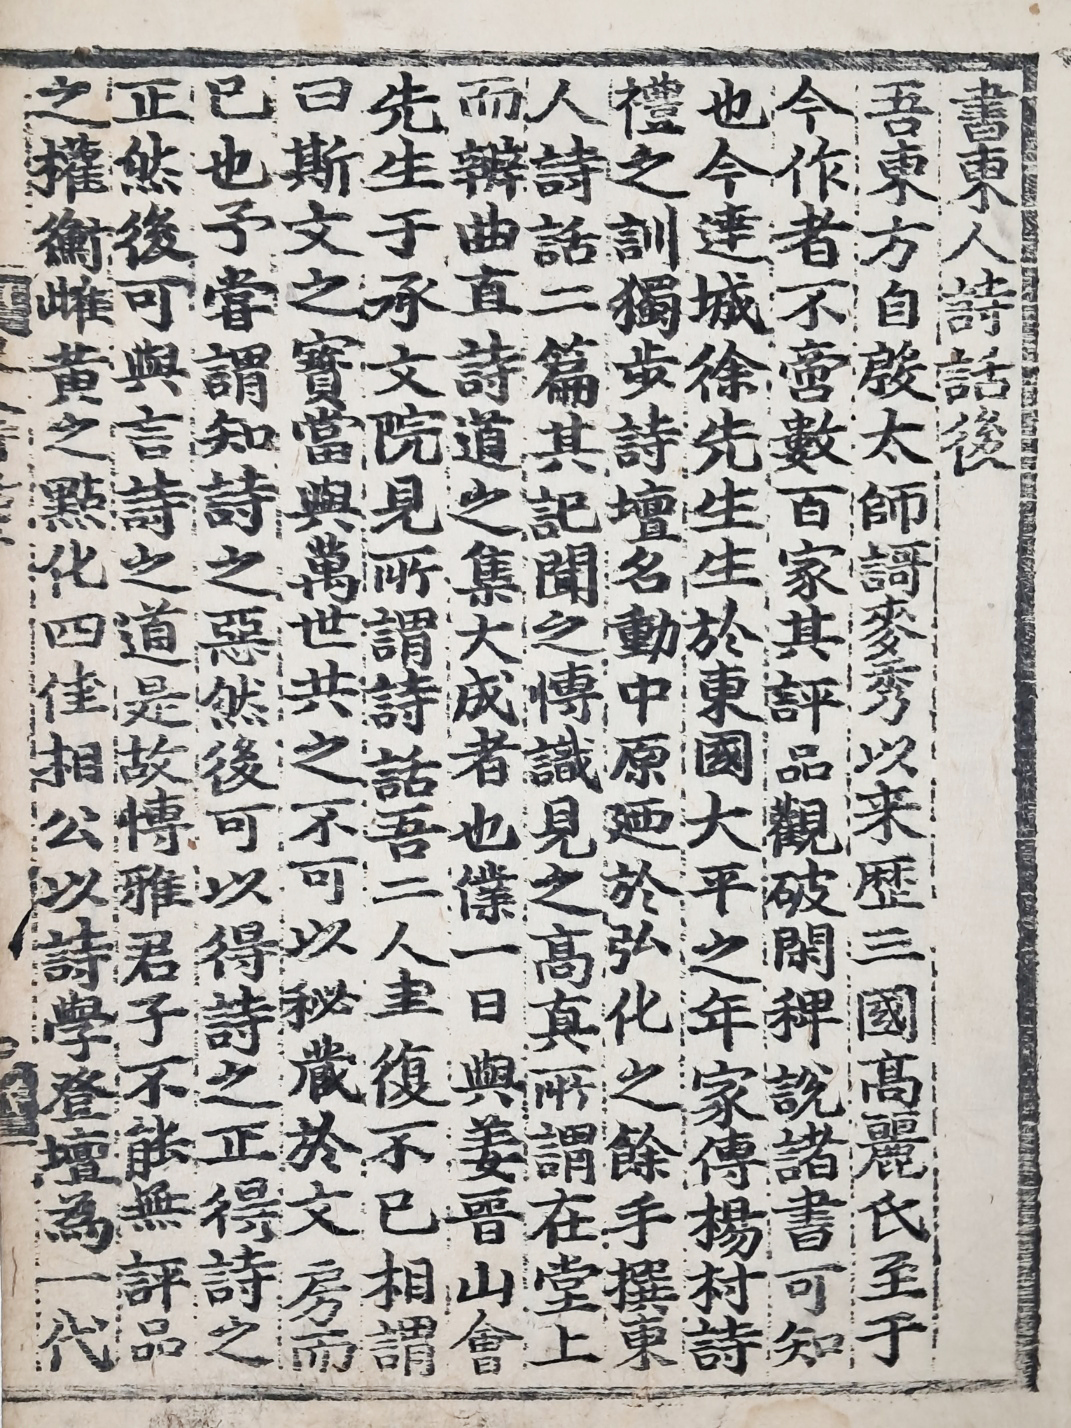 書東人詩話後
吾東方自殷太師謌麥秀以来歷三國高麗氏至于
今作者不啻數百家其評品觀破閑稗說諸書可知
也今達城徐先生生於東國大平之年家傳楊村詩
禮之訓獨步詩壇名動中原廼於弘化之餘手撰東
人詩話二篇其記聞之博識見之高真所謂在堂上
而辨曲直詩道之集大成者也僕一日與姜晉山會
先生于承文院見所謂詩話吾二人圭復不已相謂
曰斯文之寶當與萬世共之不可以秘藏於文房而
已也予嘗謂知詩之惡然後可以得詩之正得詩之
正然後可與言詩之道是故博雅君子不能無評品
之權衡雌黃之點化四佳相公以詩學登壇為一代